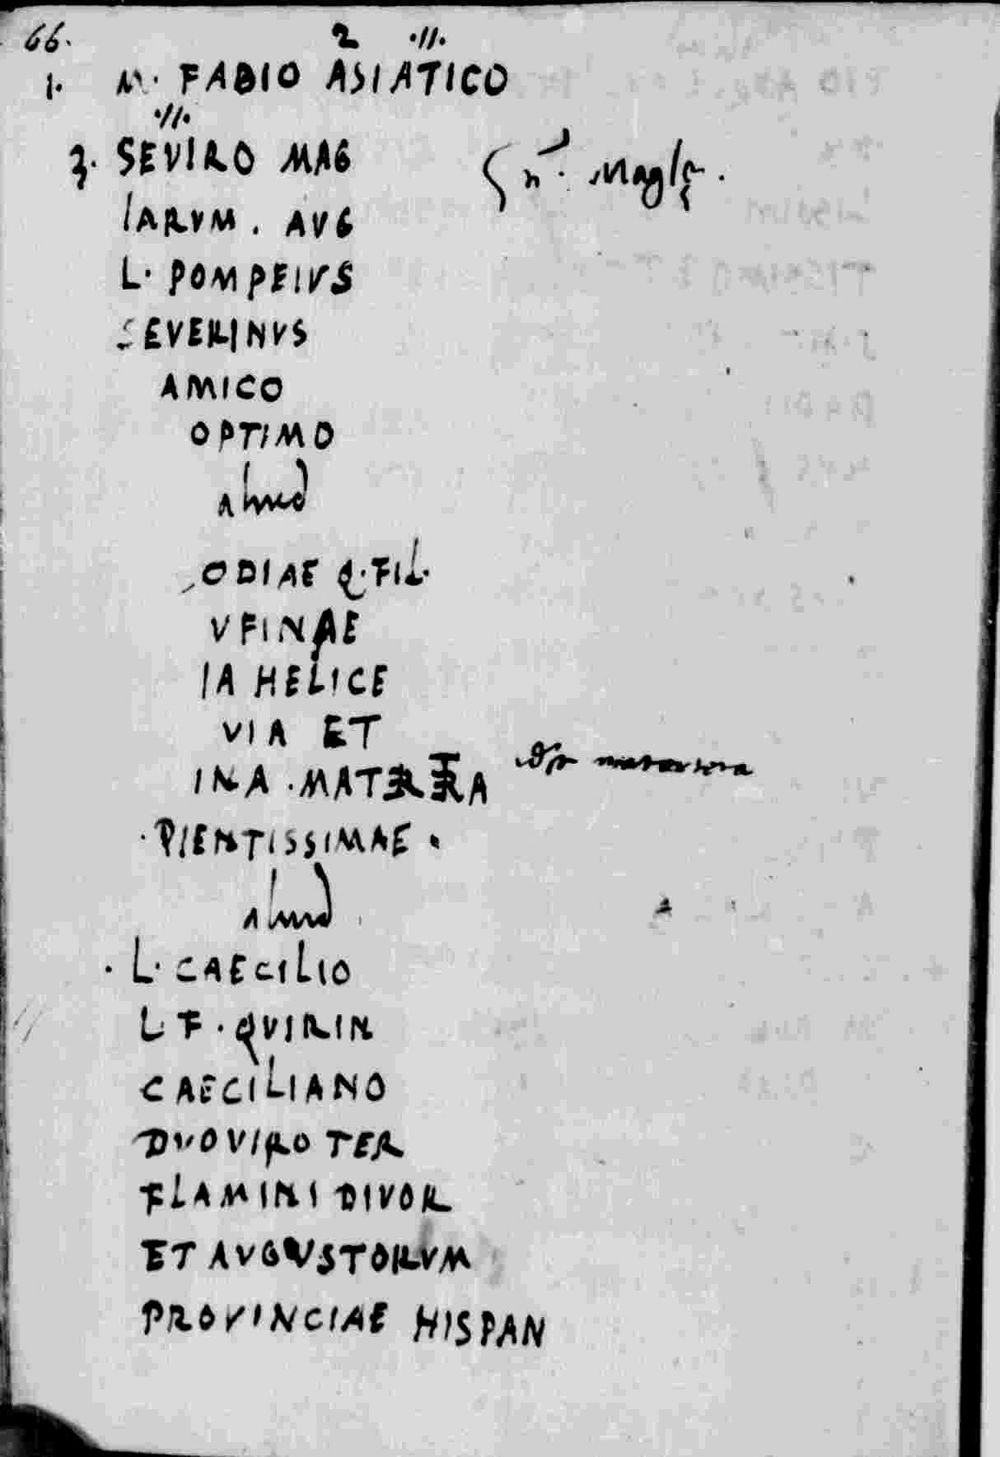 66.
2 ·//·
1. M· FABIO ASIATICO
·//·
3. SEVIRO MAG
LARVM . AVG
L· POMPEIVS
SEVERINVS
AMICO
OPTIMO
aliud
ODIAE Q·FIL·
VFINAE
IA HELICE
VIA ET
INA ·MATER A
·PIENTISSIMAE ·
aliud
· L· CAECILIO
L F · QVIRIN
CAECILIANO
DVOVIRO TER
FLAMINI DIVOR
ET AVGVSTORVM
PROVINCIAE HISPAN